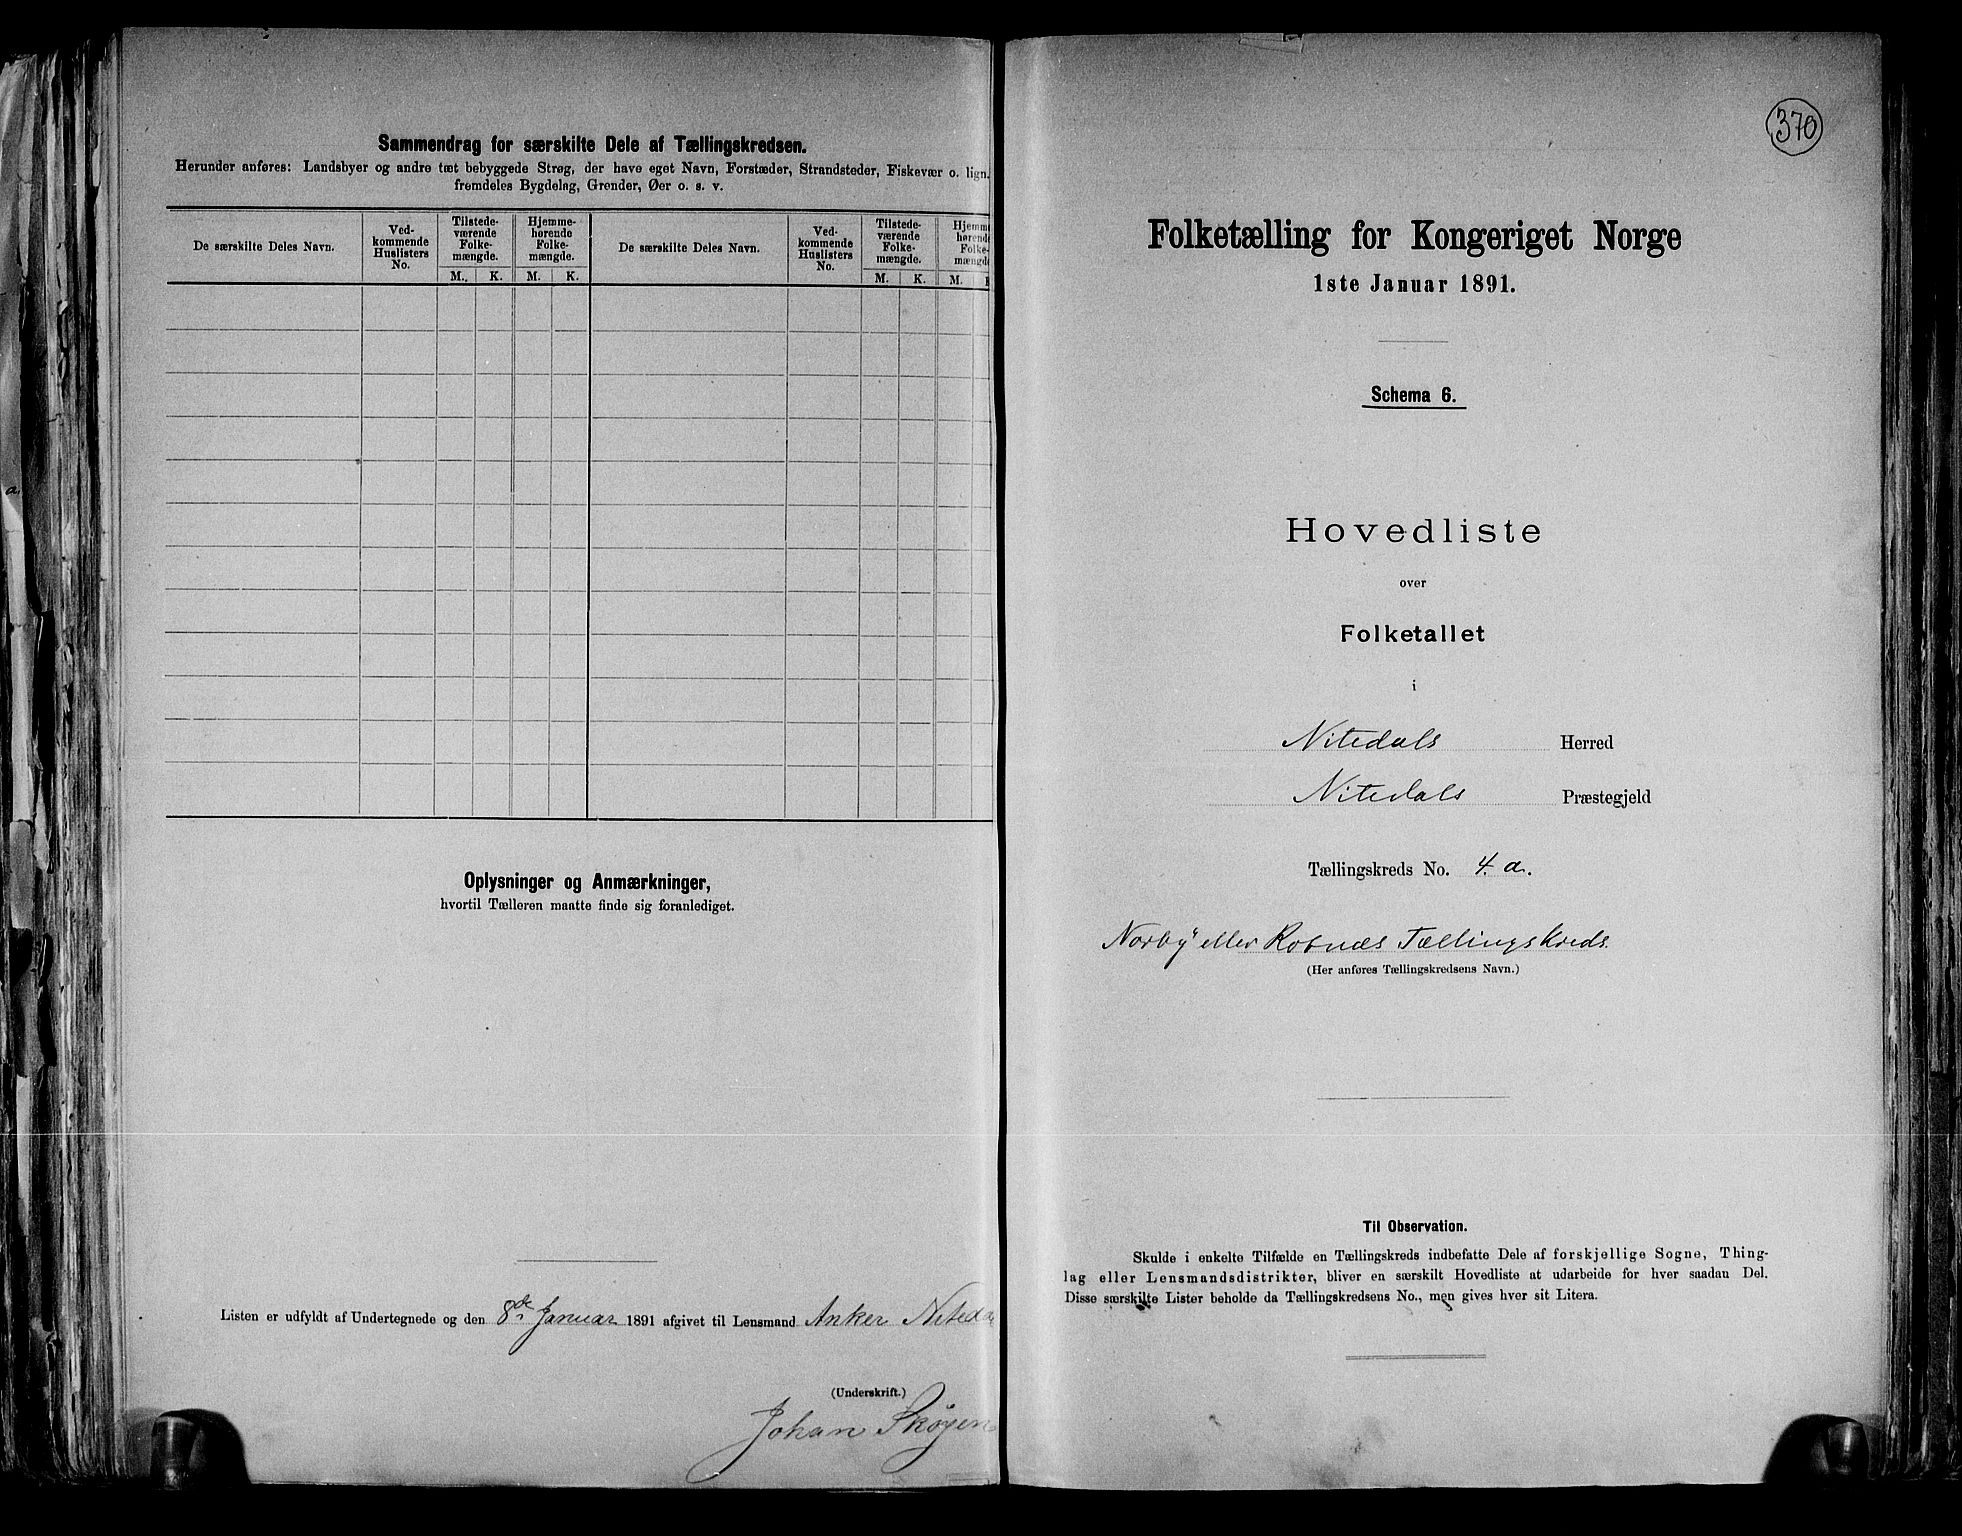 Sammendrag for særskilte Dele af Tællingskredsen.
Herunder anføres: Landsbyer og andre tæt bebyggede Strøg, der have eget Navn, Forstæder, Strandsteder, Fiskevær o. lign.
fremdeles Bygdelag, Grender, Øer o. s. v.
De særskilte Deles Navn.
Ved-
kommende
Huslisters
No.
Tilstede-
værende
Folke-
mængde.
Hjemme-
hørende
Folke-
mængde.
De særskilte Deles Navn.
Ved-
kommende
Huslisters
No.
Tilstede-
værende
Folke-
mængde.
Hjemm
hørende
Folke-
mængde
M. K. M. K. M. K. M. K
Oplysninger og Anmærkninger,
hvortil Tælleren maatte finde sig foranlediget.
Listen er udfyldt af Undertegnede og den 8de Januar 1891 afgivet til Lensmand Anker Niteda
(Underskrift.)
Johan Skøyen
370
Folketælling for Kongeriget Norge
1ste Januar 1891.
Schema 6.
Hovedliste
over
Folketallet
i
Nitedals Herred
Nitedals Præstegjeld
Tællingskreds No. 4. a.
Norby eller Rotnæs Tællingskreds
(Her anføres Tællingskredsens Navn.)
Til Observation.
Skulde i enkelte Tilfælde en Tællingskreds indbefatte Dele af forskjellige Sogne, Thing-
lag eller Lensmandsdistrikter, bliver en særskilt Hovedliste at udarbeide for hver saadan Del.
Disse særskilte Lister beholde da Tællingskredsens No., men gives hver sit Litera.